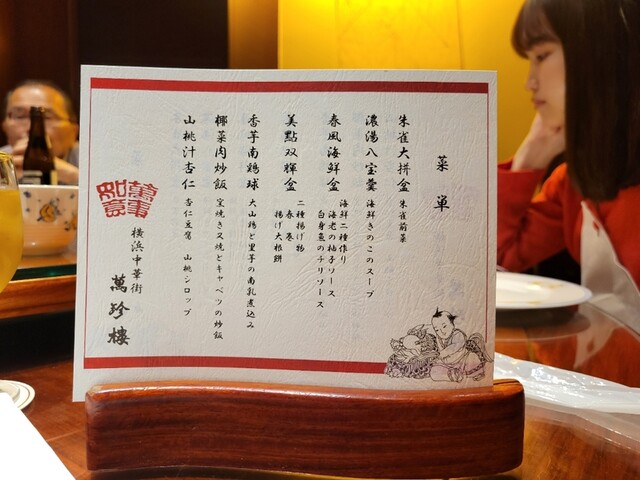 菜単
朱雀大拼盆 朱雀前菜
濃湯八宝羹 海鮮きのこのスープ
春風海鮮盆 海鮮二種作り
海老の柚子ソース
白身魚のチリソース
美點双輝盆 二種揚げ物
春巻
揚げ大根餅
香芋南鶏球 大山鶏と里芋の南乳煮込み
椰菜肉炒飯 窯焼き叉焼とキャベツの炒飯
山桃汁杏仁 杏仁豆腐 山桃シロップ
萬事如意
横浜中華街
萬珍樓